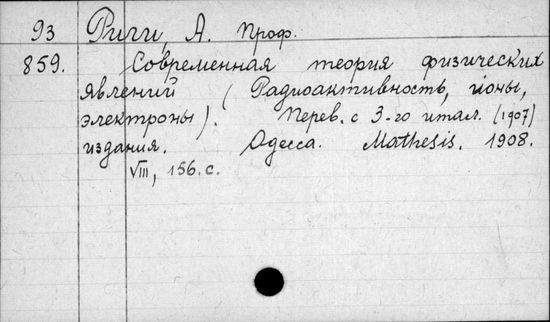 93 Риги, А. Проф.
859. Современная теория физических
явлений (Радиоактивность, ионы,
электроны). Перев. с 3-го итал. (1907)
издания. Одесса. Mathesis. 1908.
VIII, 156. с.